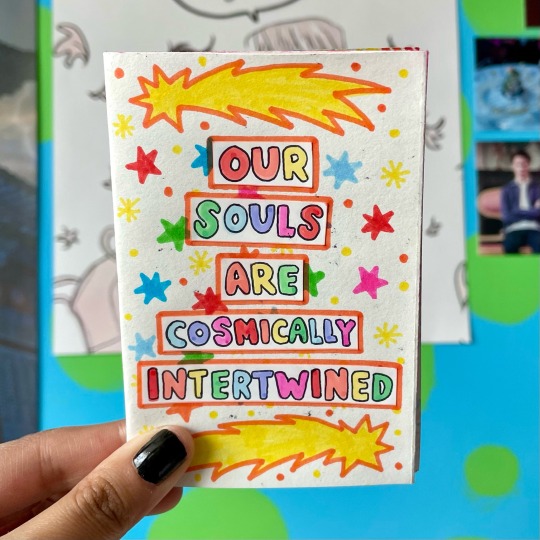 OUR
SOULS
ARE
COSMICALLY
INTERTWINED